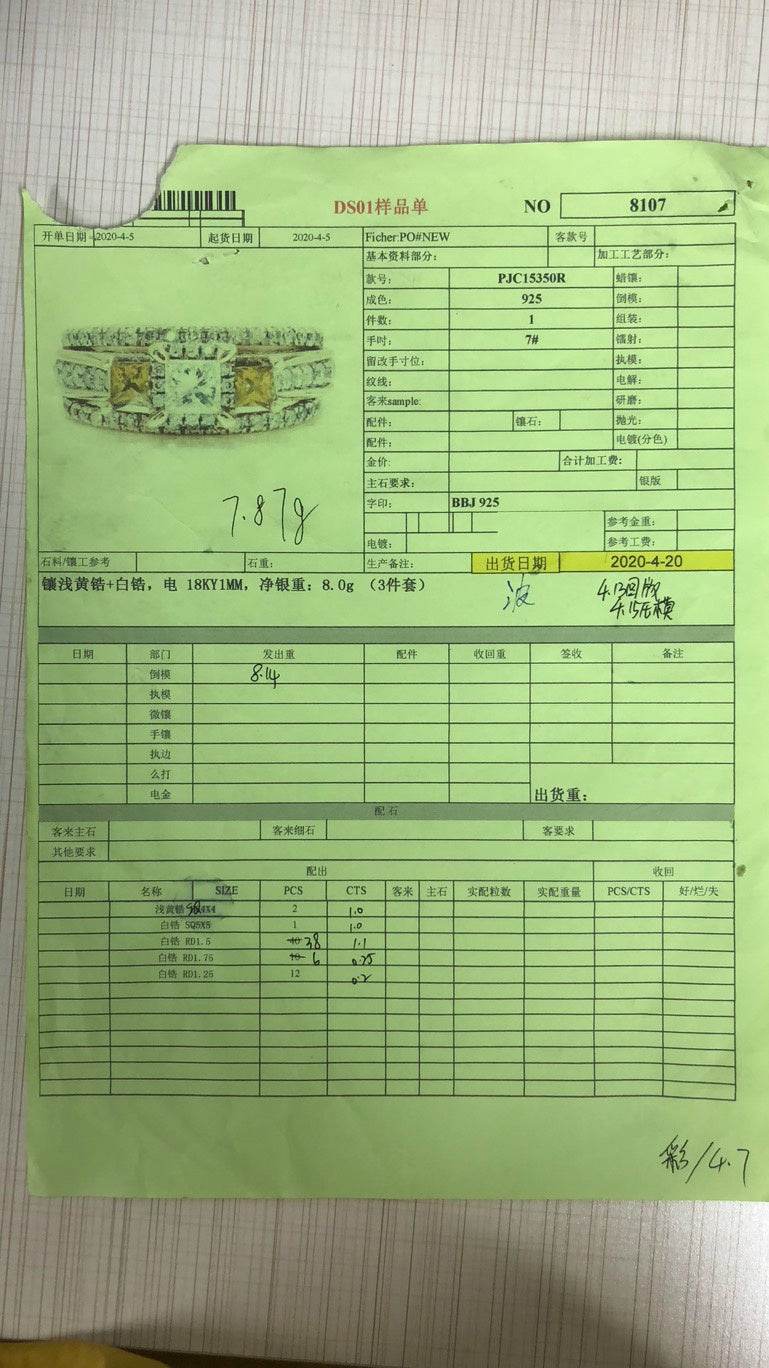 DS01样品单 NO 8107
开单日期 2020-4-5 起货日期 2020-4-5 Ficher:PO#NEW 客款号
基本资料部分: 加工工艺部分:
款号: PJC15350R 蜡镶:
成色: 925 倒模:
件数: 1 组装:
手吋: 7# 镭射:
留改手寸位: 执模:
纹线: 电解:
客来sample: 研磨:
配件: 镶石: 抛光:
配件: 电镀(分色)
金价: 合计加工费:
主石要求: 银版
字印: BBJ 925
参考金重:
电镀: 参考工费:
7.87g
石料/镶工参考 石重: 生产备注: 出货日期 2020-4-20
镶浅黄锆+白锆，电 18KY1MM，净银重：8.0g （3件套）
波 4.13回版
4.15压模
日期 部门 发出重 配件 收回重 签收 备注
倒模 8.14
执模
微镶
手镶
执边
么打
电金 出货重:
配石
客来主石 客来细石 客要求
其他要求
配出 收回
日期 名称 SIZE PCS CTS 客来 主石 实配粒数 实配重量 PCS/CTS 好/烂/失
浅黄锆 SQ4X4 2 1.0
白锆 SQ5X5 1 1.0
白锆 RD1.5 40 38 1.1
白锆 RD1.75 10 6 0.25
白锆 RD1.25 12 0.2
彩/4.7